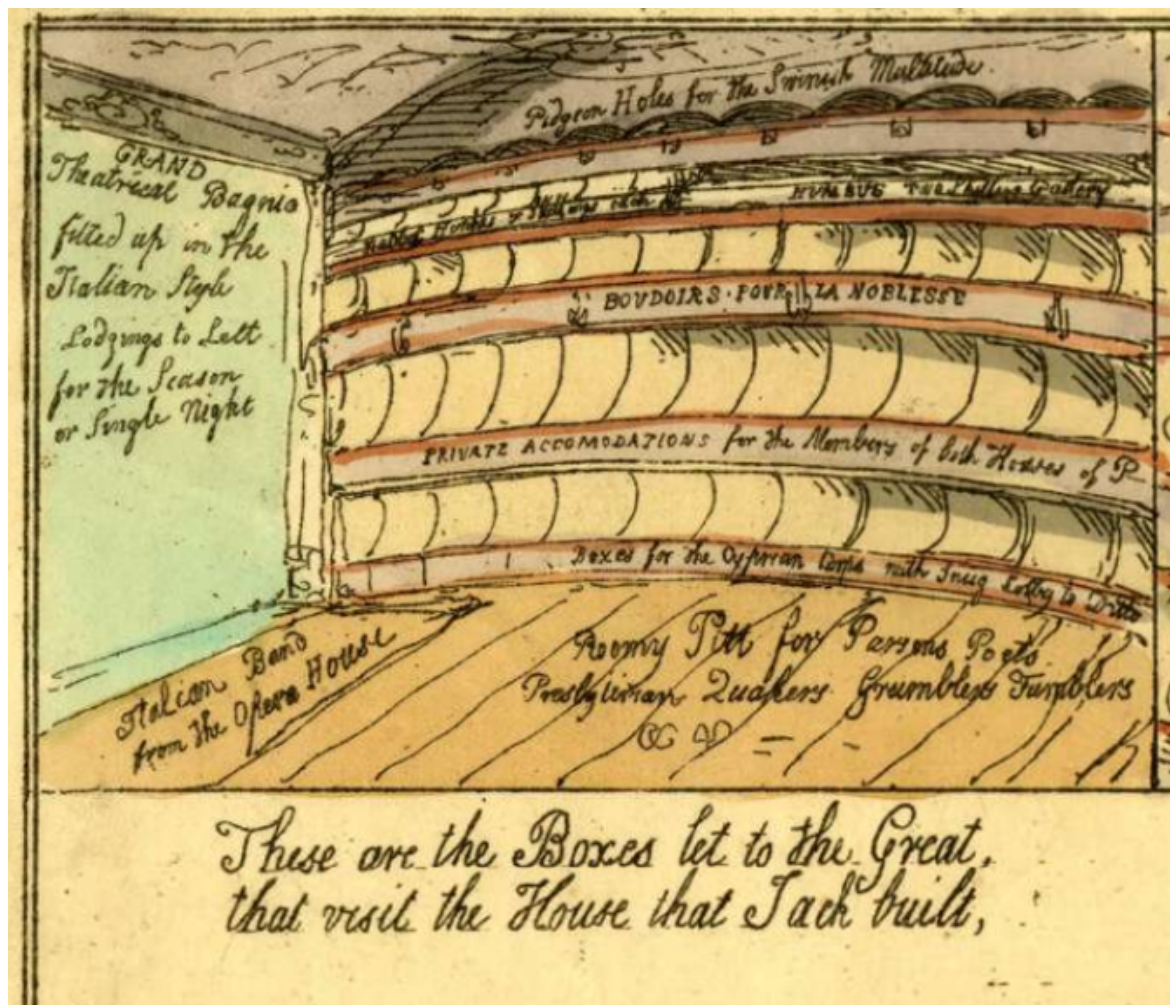 Pidgeon Holes for the Swinish Multitude.
GRAND
Theatrical Bagnio
fitted up in the
Italian Style
Lodgings to Lett
for the Season
or Single Night
HUMBUG Two Shilling Gallery
BOUDOIRS POUR LA NOBLESSE
PRIVATE ACCOMODATIONS for the Members of both Houses of P
Boxes for the Cyprian Corps with Snug Lobby to Ditto
Italian Band
from the Opera House
Roomy Pitt for Parsons Poets
Presbyterian Quakers Grumblers Fumblers
These are the Boxes let to the Great,
that visit the House that Jack built,